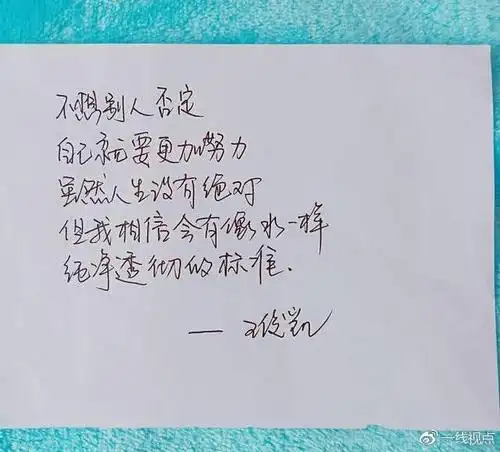 不想别人否定
自己就要更加努力
虽然人生没有绝对
但我相信会有像水一样
纯净透彻的标准.
—王俊凯
一线视点